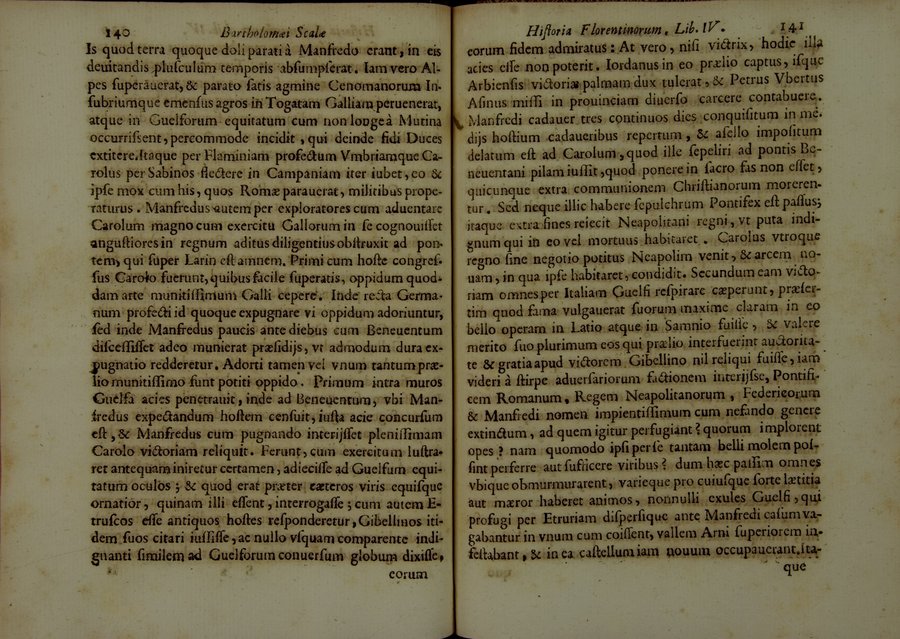 140 Bartholomæi Scalæ
Is quod terra quoque doli parati à Manfredo erant, in eis
deuitandis plusculum temporis absumpserat. Iam vero Al-
pes superauerat, & parato satis agmine Cenomanorum In-
subriumque emensus agros in Togatam Galliam peruenerat,
atque in Guelforum equitatum cum non longeà Mutina
occurrissent, percommode incidit, qui deinde fidi Duces
extitere. Itaque per Flaminiam profectum Vmbriamque Ca-
rolus per Sabinos flectere in Campaniam iter iubet, eo &
ipse mox cum his, quos Romæ parauerat, militibus prope-
raturus. Manfredus autem per exploratores cum aduentare
Carolum magno cum exercitu Gallorum in se cognouisset
angustiores in regnum aditus diligentius obstruxit ad pon-
tem, qui super Larin est amnem. Primi cum hoste congres-
sus Carolo fuerunt, quibus facile superatis, oppidum quod-
dam arte munitissimum Galli cepere. Inde recta Germa-
num profecti id quoque expugnare vi oppidum adoriuntur,
sed inde Manfredus paucis ante diebus cum Beneuentum
discessisset adeo munierat præsidijs, vt admodum dura ex-
pugnatio redderetur. Adorti tamen vel vnum tantum præ-
lio munitissimo sunt potiti oppido. Primum intra muros
Guelfa acies penetrauit, inde ad Beneuentum, vbi Man-
fredus expectandum hostem censuit, iusta acie concursum
est, & Manfredus cum pugnando interijsset plenissimam
Carolo victoriam reliquit. Ferunt, cum exercitum lustra-
ret antequam iniretur certamen, adiecisse ad Guelfum equi-
tatum oculos; & quod erat præter cæteros viris equisque
ornatior, quinam illi essent, interrogasse; cum autem E-
truscos esse antiquos hostes responderetur, Gibellinos iti-
dem suos citari iussisse, ac nullo vsquam comparente indi-
gnanti similem ad Guelforum conuersum globum dixisse,
eorum
Historia Florentinorum. Lib. IV. 141
eorum fidem admiratus: At vero, nisi victrix, hodie illa
acies esse non poterit. Iordanus in eo prælio captus, isque
Arbiensis victoriæ palmam dux tulerat, & Petrus Vbertus
Asinus missi in prouinciam diuerso carcere contabuere.
Manfredi cadauer tres continuos dies conquisitum in me-
dijs hostium cadaueribus repertum, & asello impositum
delatum est ad Carolum, quod ille sepeliri ad pontis Be-
neuentani pilam iussit, quod ponere in sacro fas non esset,
quicunque extra communionem Christianorum moreren-
tur. Sed neque illic habere sepulchrum Pontifex est passus;
itaque extra fines reiecit Neapolitani regni, vt puta indi-
gnum qui in eo vel mortuus habitaret. Carolus vtroque
regno sine negotio potitus Neapolim venit, & arcem no-
uam, in qua ipse habitaret, condidit. Secundum eam victo-
riam omnes per Italiam Guelfi respirare cæperunt, præser-
tim quod fama vulgauerat suorum maxime claram in eo
bello operam in Latio atque in Samnio fuisse, & valere
merito suo plurimum eos qui prælio interfuerint auctorita-
te & gratia apud victorem Gibellino nil reliqui fuisse, iam
videri à stirpe aduersariorum factionem interijsse, Pontifi-
cem Romanum, Regem Neapolitanorum, Federicorum
& Manfredi nomen impientissimum cum nefando genere
extinctum, ad quem igitur perfugiant? quorum implorent
opes? nam quomodo ipsi per se tantam belli molem pos-
sint perferre aut sufficere viribus? dum hæc passim omnes
vbique obmurmurarent, varieque pro cuiusque sorte lætitia
aut mæror haberet animos, nonnulli exules Guelfi, qui
profugi per Etruriam dispersique ante Manfredi casum va-
gabantur in vnum cum coissent, vallem Arni superiorem in-
festabant, & in ea castellum iam nouum occupauerant. Ita-
que